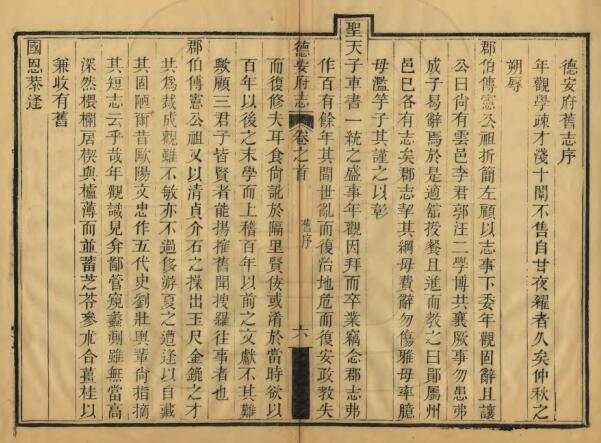 德安府舊志序
年觀學疎才淺十闈不售自甘夜糴者久矣仲秋之
朔辱
郡伯傅憲公祖折簡左顧以志事下委年觀固辭且讓
公曰尚有雲邑李君郭汪二學博共襄厥事勿患弗
成子曷辭焉於是適舘授餐且進而教之曰鄖屬州
邑巳各有志矣郡志挈其綱毋費辭勿傷雅毋率臆
毋濫竽子其謹之以彰
聖天子車書一統之盛事年觀因拜而卒業竊念郡志弗
作百有餘年其間世亂而復治地危而復安政教失
德安府志
卷之首
舊序
六
而復修夫耳食尚訛於隔里賢佞或淆於當時欲以
百年以後之末學而上稽百年以前之文獻不其難
歟顧三君子皆賢者能揚搉舊聞搜羅往事者也
郡伯傅憲公祖又以清貞介石之操出玉尺金鏡之才
共爲裁成觀雖不敏亦不過侈游夏之遭逢以自藏
其固陋爾昔歐陽文忠作五代史劉壯輿輩尚指摘
其短志云乎哉年觀識見弇鄙管窺蠡測雖無當高
深然椳闑居楔與櫨薄而並蓄芝苓參朮合薑桂以
兼收有舊
國恩恭逢